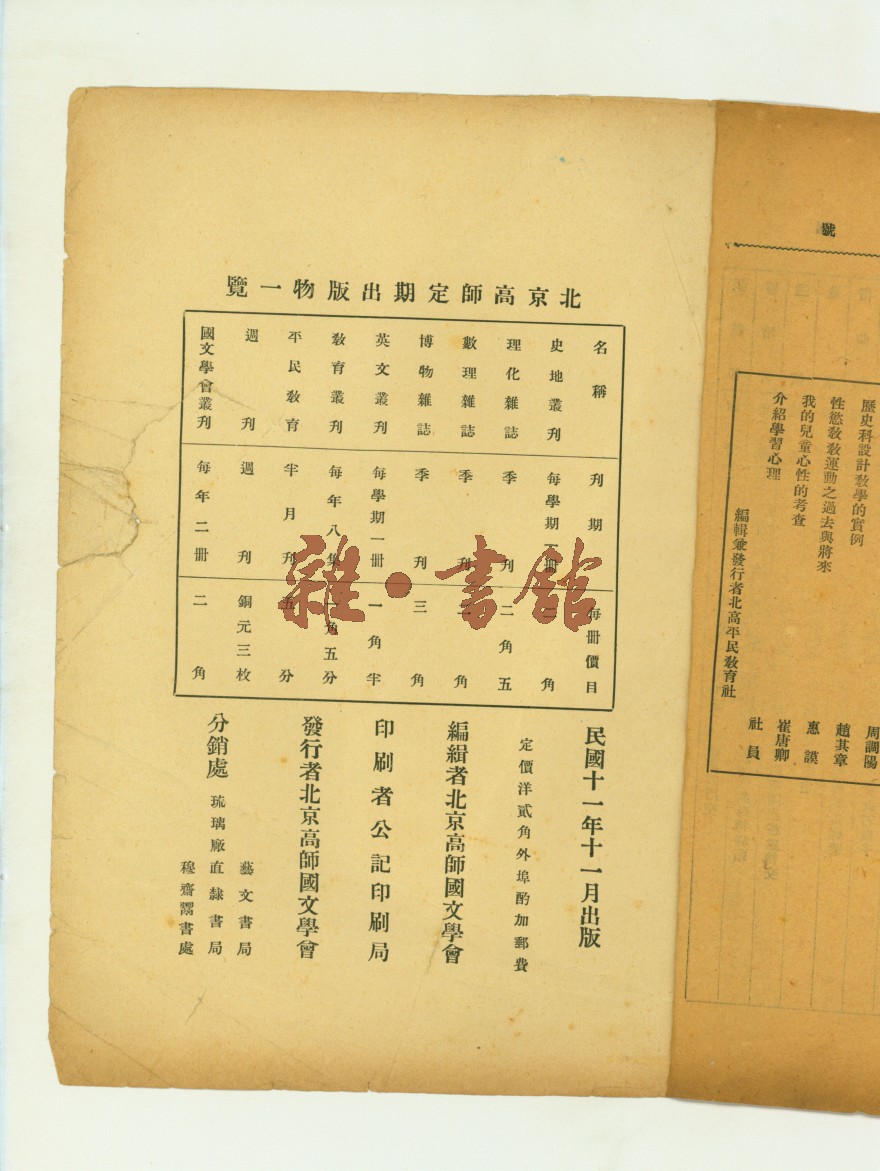 號
歷史科設計教學的實例
周調陽
性慾教教運動之過去與將來
趙其章
我的兒童心性的考查
惠謨
介紹學習心理
崔唐卿
編輯兼發行者北高平民教育社
社員
北京高師定期出版物一覽
名稱 刊期 每冊價目
史地叢刊 每學期一冊 二角
理化雜誌 季刊 二角五
數理雜誌 季刊 角
博物雜誌 季刊 三角
英文叢刊 每學期一冊 一角半
教育叢刊 每年八集 角五分
平民教育 半月刊 五分
週刊 週刊 銅元三枚
國文學會叢刊 每年二冊 二角
民國十一年十一月出版
定價洋貳角外埠酌加郵費
編緝者北京高師國文學會
印刷者公記印刷局
發行者北京高師國文學會
分銷處
藝文書局
琉璃廠直隸書局
穆齋鬻書處
雜·書館